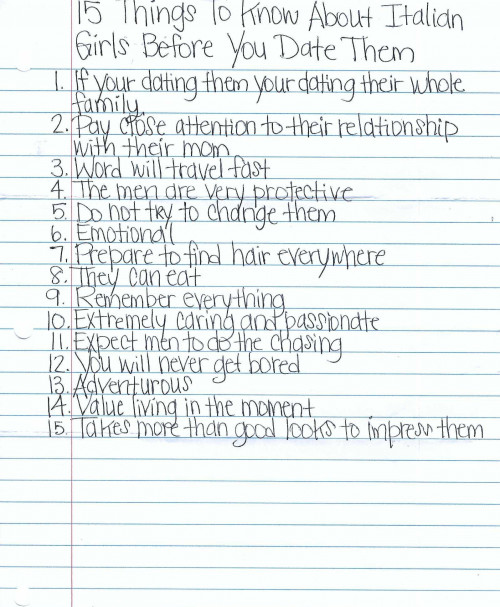 15 Things To Know About Italian
Girls Before You Date Them
1. If your dating them your dating their whole
family.
2. Pay close attention to their relationship
with their mom
3. Word will travel fast
4. The men are very protective
5. Do not try to change them
6. Emotional
7. Prepare to find hair everywhere
8. They can eat
9. Remember everything
10. Extremely caring and passionate
11. Expect men to do the chasing
12. You will never get bored
13. Adventurous
14. Value living in the moment
15. Takes more than good looks to impress them